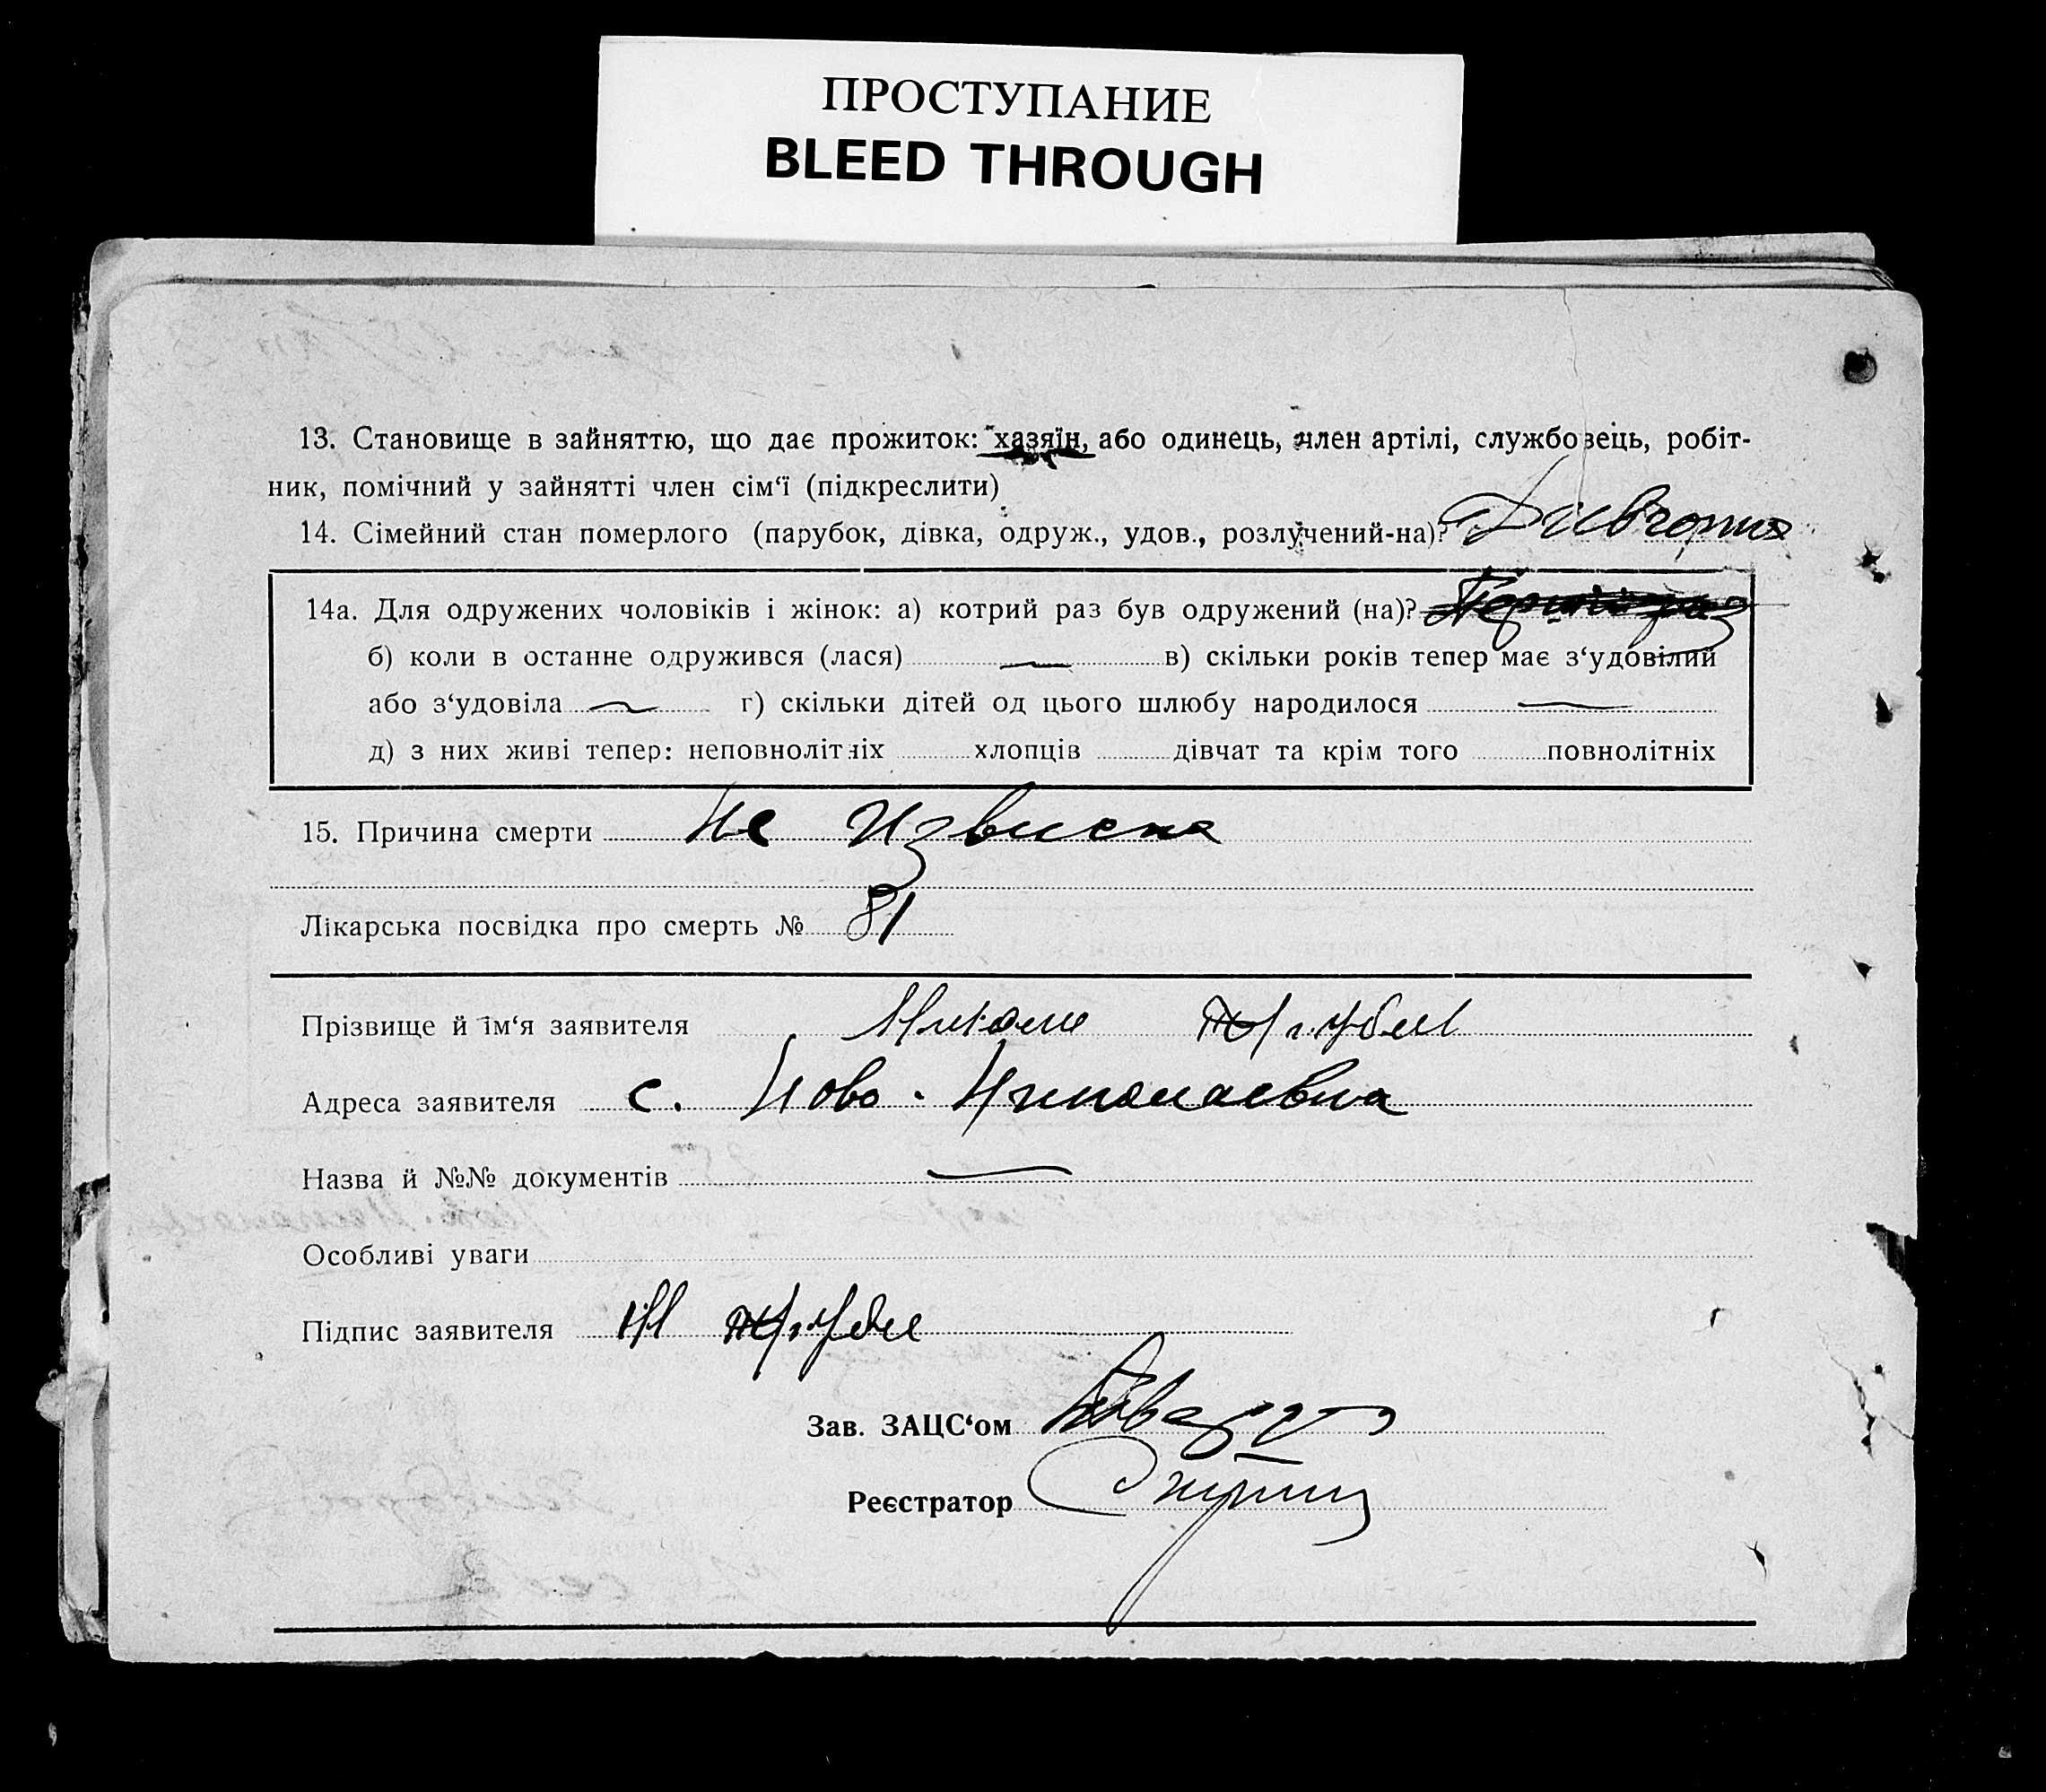 ПРОСТУПАНИЕ
BLEED THROUGH
13. Становище в зайняттю, що дає прожиток: хазяїн, або одинець, член артілі, службовець, робіт-
ник, помічний у зайнятті член сім‘ї (підкреслити)
14. Сімейний стан померлого (парубок, дівка, одруж., удов., розлучений-на)?
14а. Для одружених чоловіків і жінок: а) котрий раз був одружений (на)?
б) коли в останне одружився (лася) — в) скільки років тепер має з‘удовілий
або з‘удовіла — г) скільки дітей од цього шлюбу народилося —
д) з них живі тепер: неповнолітніх хлопців дівчат та крім того повнолітніх
15. Причина смерти Не
Лікарська посвідка про смерть № 81
Прізвище й ім‘я заявителя
Адреса заявителя с. Ново-Николаевка
Назва й №№ документів —
Особливі уваги
Підпис заявителя
Зав. ЗАЦС‘ом
Реєстратор